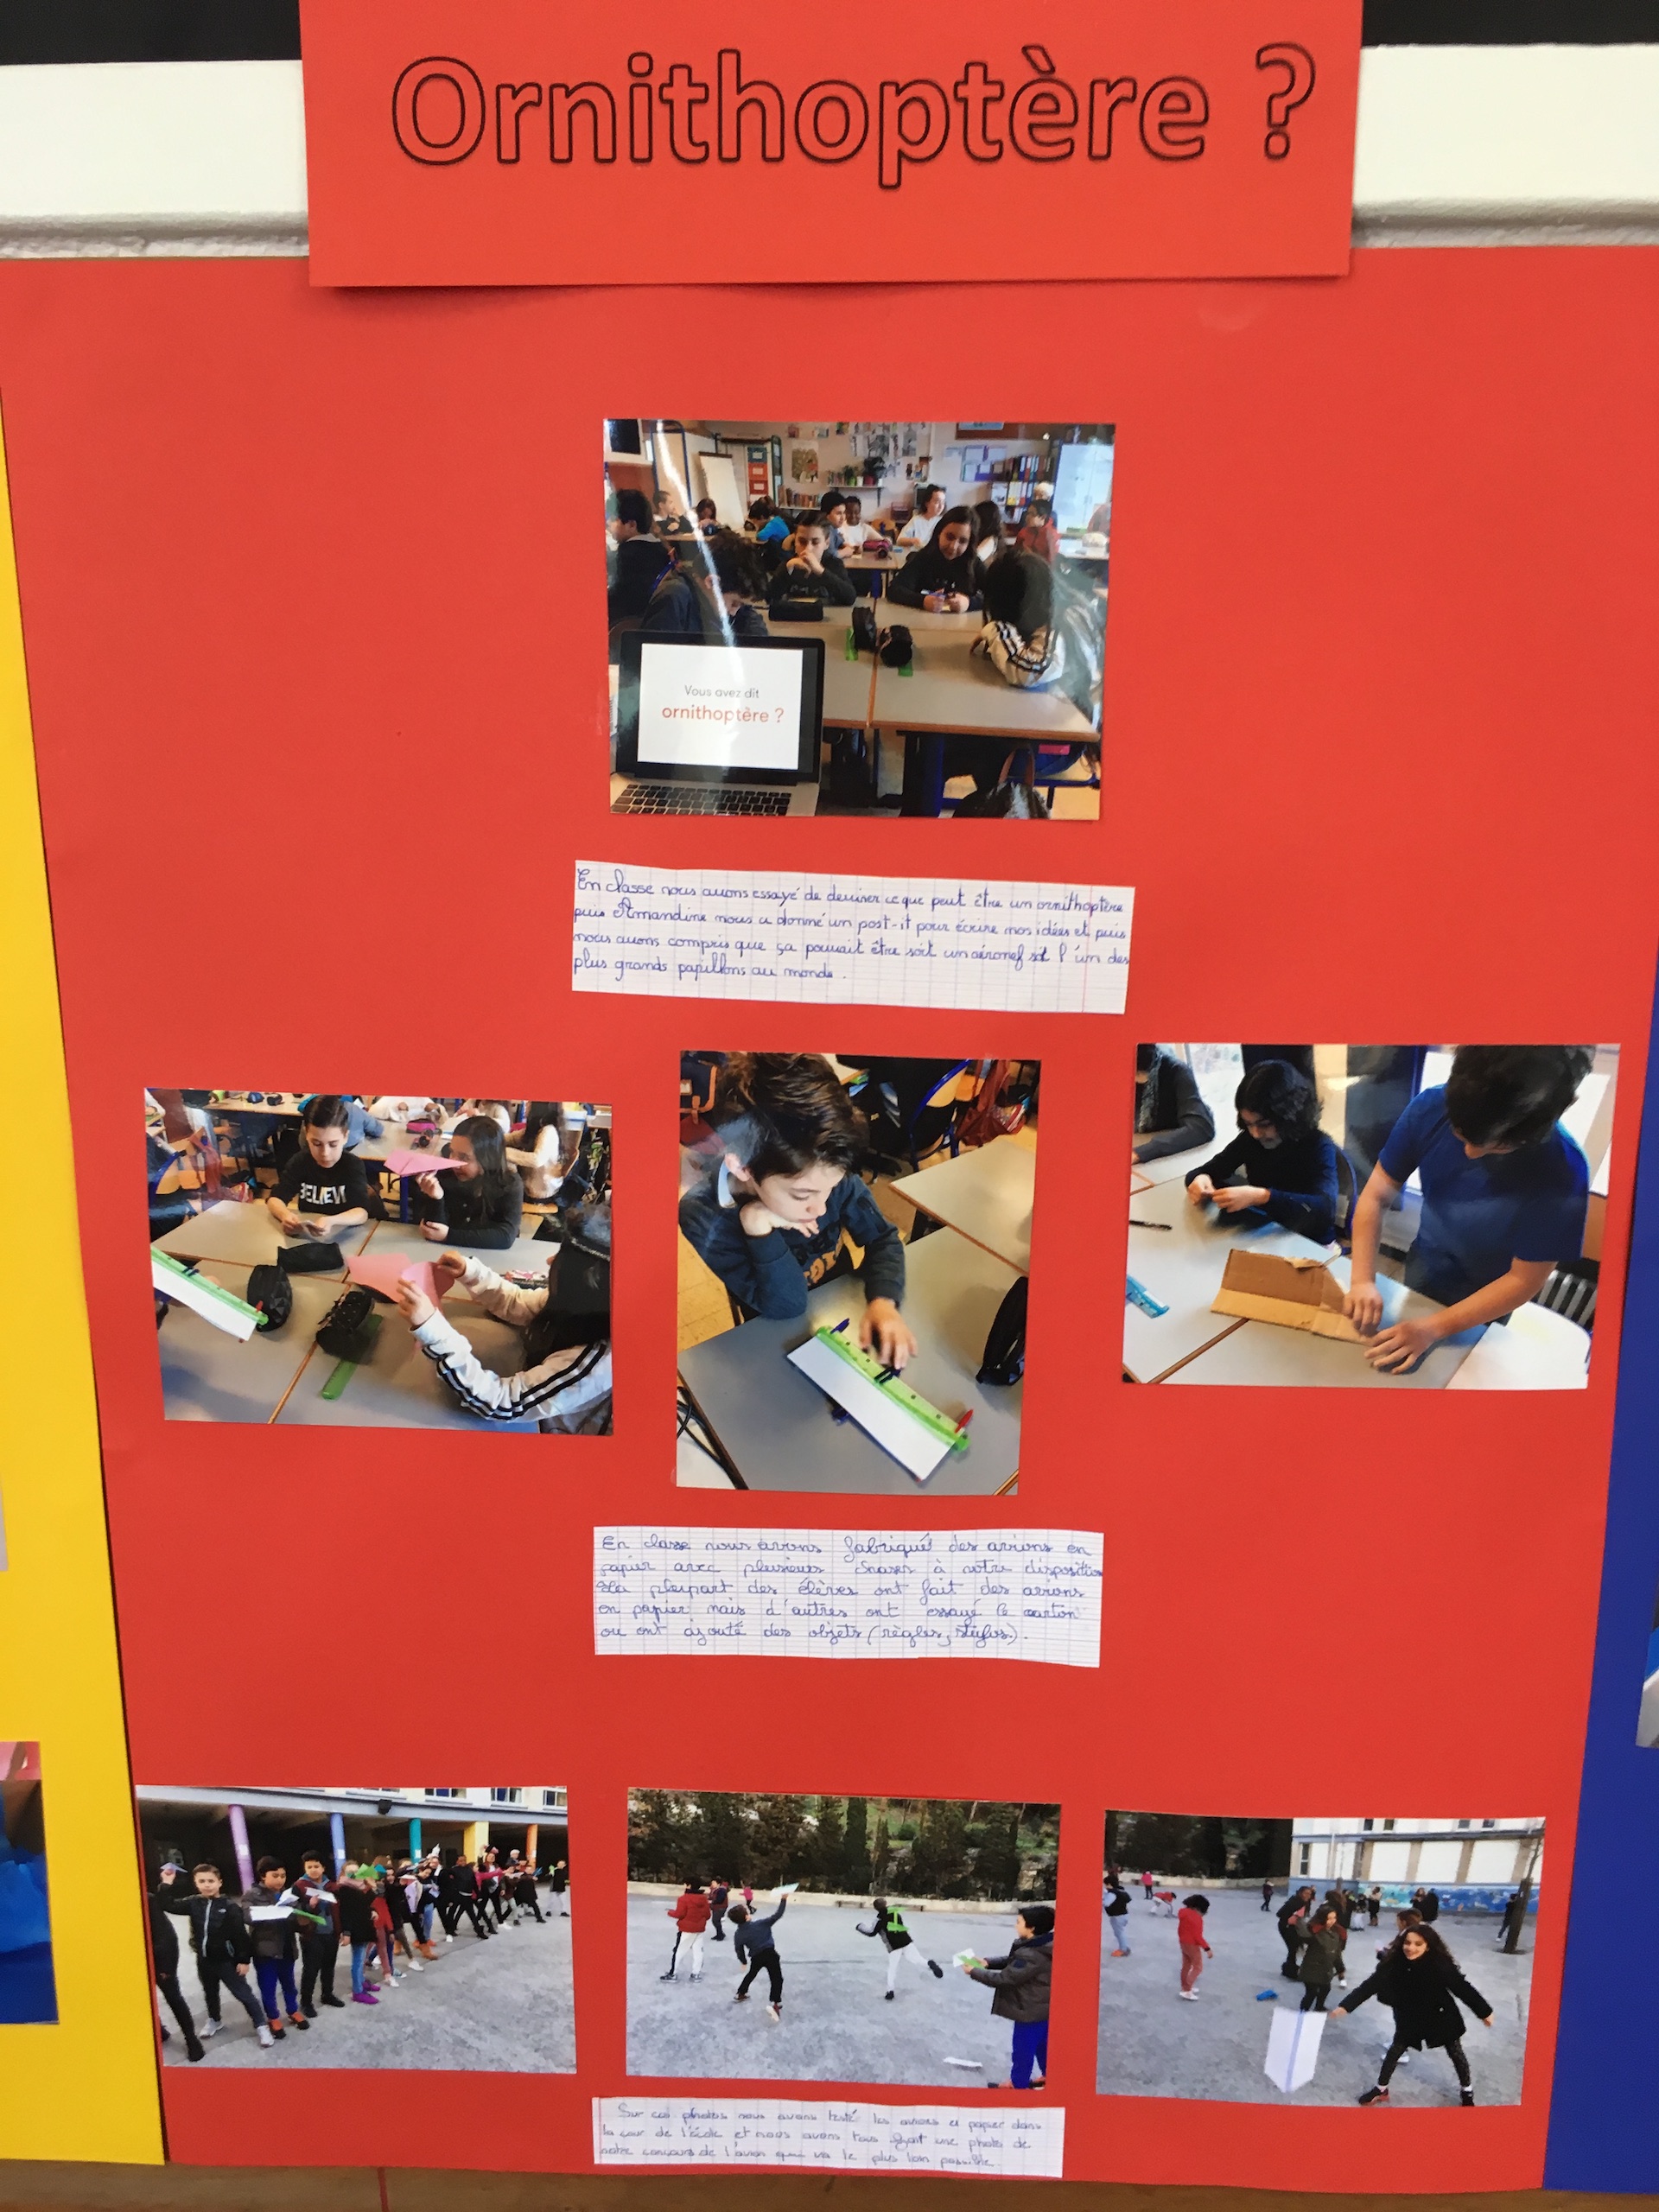 Ornithoptère ?
Vous avez dit
ornithoptère ?
En classe nous avons essayé de deviner ce que peut être un ornithoptère
puis Amandine nous a donné un post-it pour écrire nos idées et puis
nous avons compris que ça pouvait être soit un aéronef soit l'un des
plus grands papillons au monde.
BELIEV
En classe nous avons fabriqué des avions en
papier avec plusieurs à notre disposition
La plupart des élèves ont fait des avions
en papier mais d'autres ont essayé le carton
ou ont ajouté des objets (règles, stylos).
Sur ces photos nous avons testé les avions et papier dans
la cour de l'école et nous avons tous fait une photo de
notre concours de l'avion qui va le plus loin possible